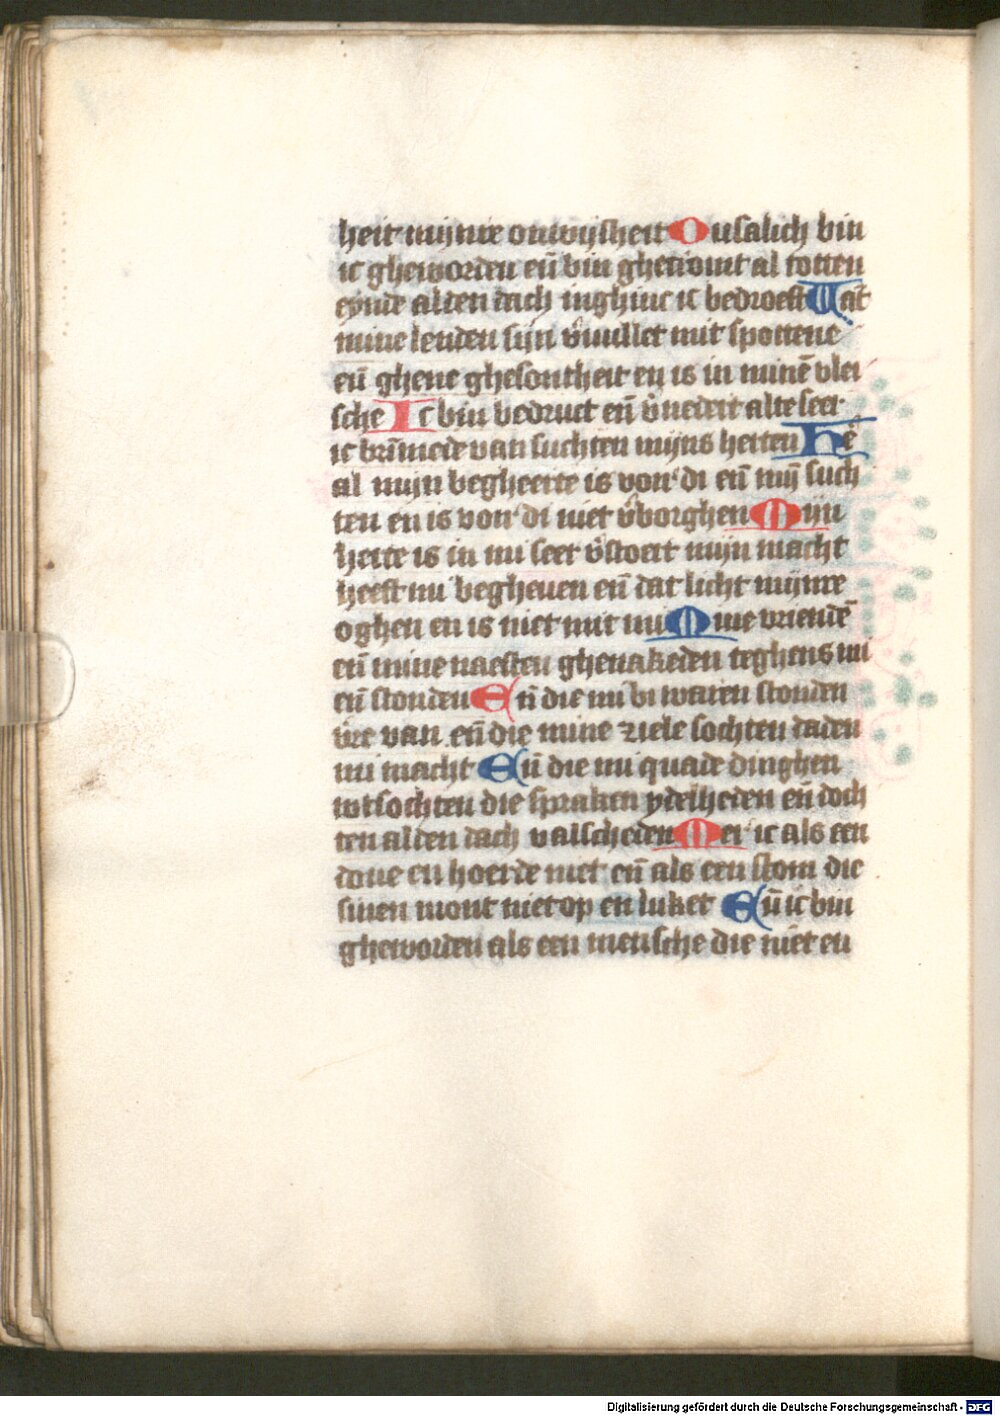 heit mijnre onwijsheit Onsalich bin
ic gheworden eñ bin ghecromt al totten
eynde allen dach inghinc ic bedroeft Wāt
mine lenden sijn v̄vullet mit spottene
eñ ghene ghesontheit en is in minē vlei
sche Ic bin bedruct eñ v̄nedert alte seer
ic brīmede van suchten mijns herten He͛
al mijn begheerte is vor͛ di eñ mij̄ such
ten en is vor͛ di niet v̄borghen Mijn
herte is in mi seer v̄stoert mijn macht
heeft mi begheuen eñ dat licht mijnre
oghen en is niet mit mi Mine vriendē
eñ mine naesten ghenakeden teghens mi
eñ stonden Eñ die mi bi waren stonden
v̄re van eñ die mine ziele sochten daden
mi macht Eñ die mi quade dinghen
wtsochten die spraken ydelheden eñ doch
ten al den dach valscheden Mer ic als een
doue en hoerde niet eñ als een stom die
sinen mont niet op en luket Eñ ic bin
gheworden als een mensche die niet en
Digitalisierung gefördert durch die Deutsche Forschungsgemeinschaft - DFG